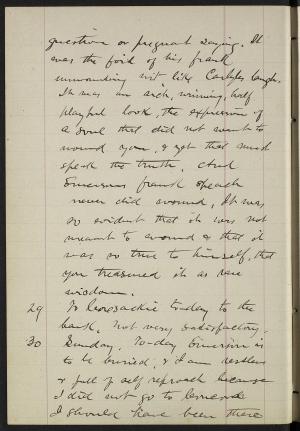 question or pregnant saying. It
was the foil of his frank
unwounding wit like Carlyle's laugh.
It was an arch, winning, half
playful look, the expression of
a soul that did not want to
wound you, & yet that must
speak the truth. And
Emerson's frank speech
never did wound. It was
so evident that it was not
meant to wound & that it
was so true to himself, that
you treasured it as rare
wisdom.
29 To to-day to the
bank. Not very satisfactory.
30 Sunday. To-day Emerson is
to be buried, & I am restless
& full of self reproach because
I did not go to Concord
I should have been there